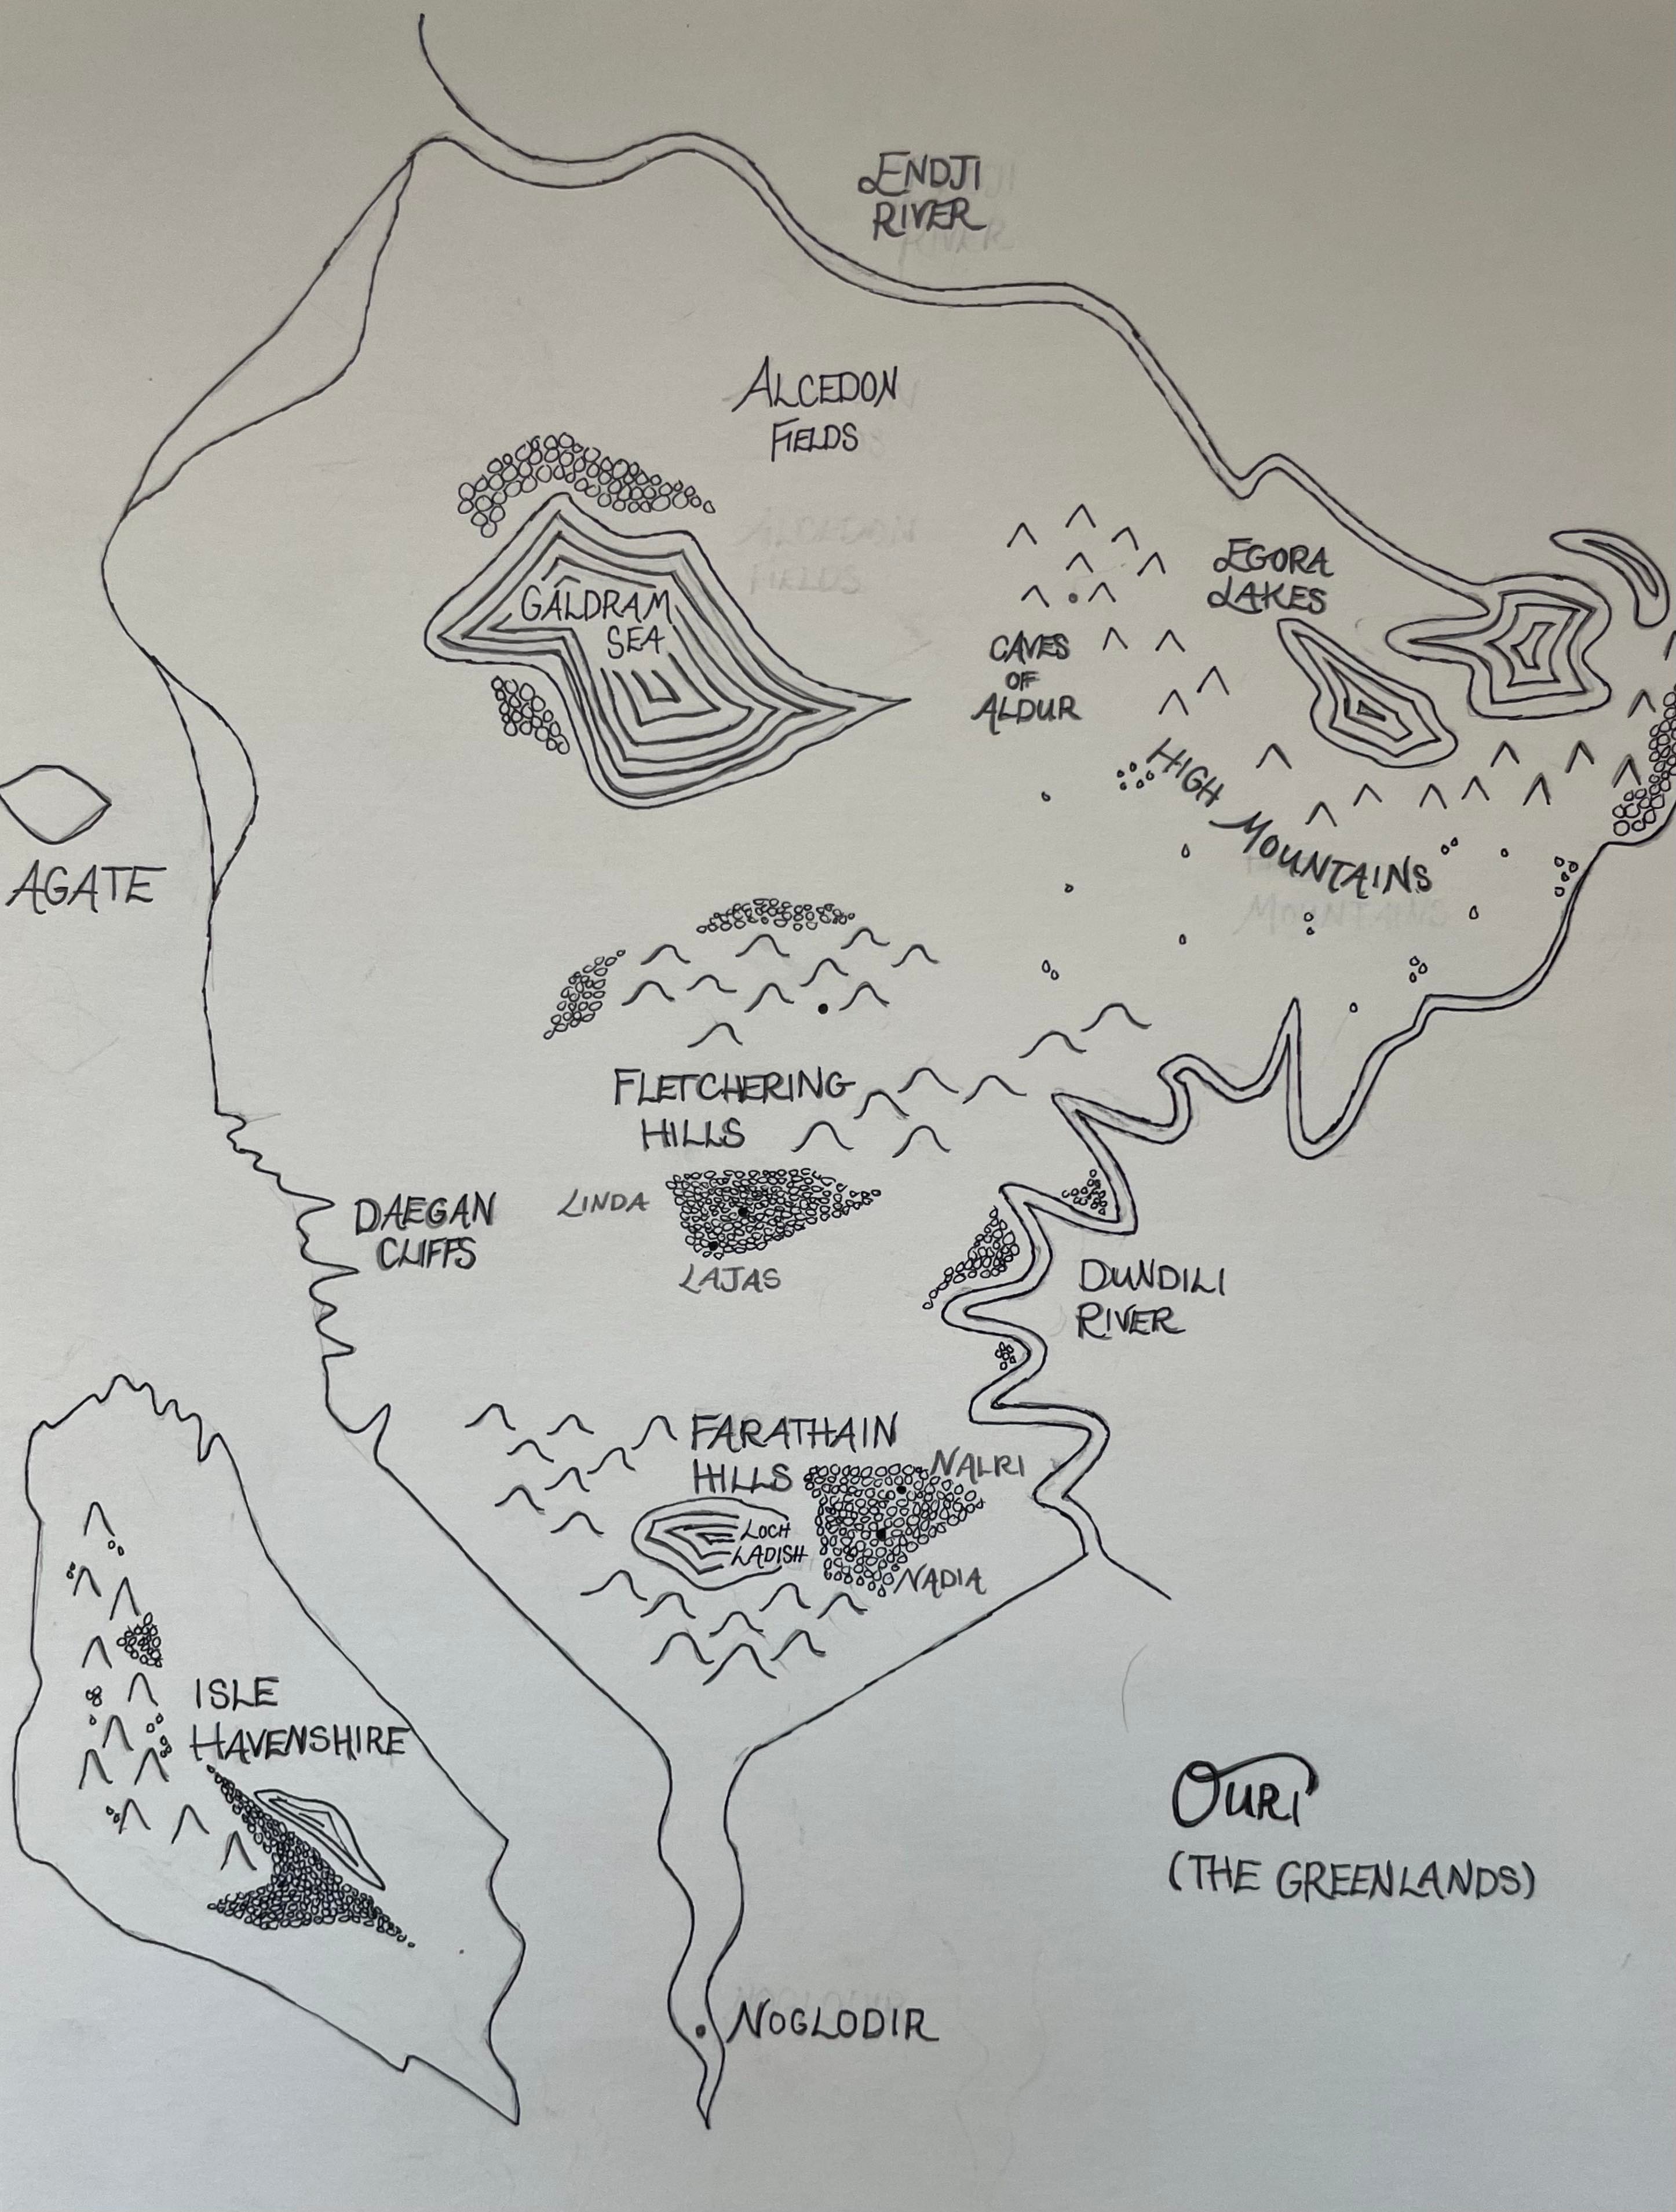 ENDJI
RIVER
ALCEDON
FIELDS
EGORA
LAKES
GALDRAM
SEA
CAVES
OF
ALDUR
HIGH MOUNTAINS
AGATE
FLETCHERING
HILLS
LINDA
LAJAS
DAEGAN
CLIFFS
DUNDILI
RIVER
FARATHAIN
HILLS
NALRI
LOCH
LADISH
NADIA
ISLE
HAVENSHIRE
OURI
(THE GREENLANDS)
NOGLODIR